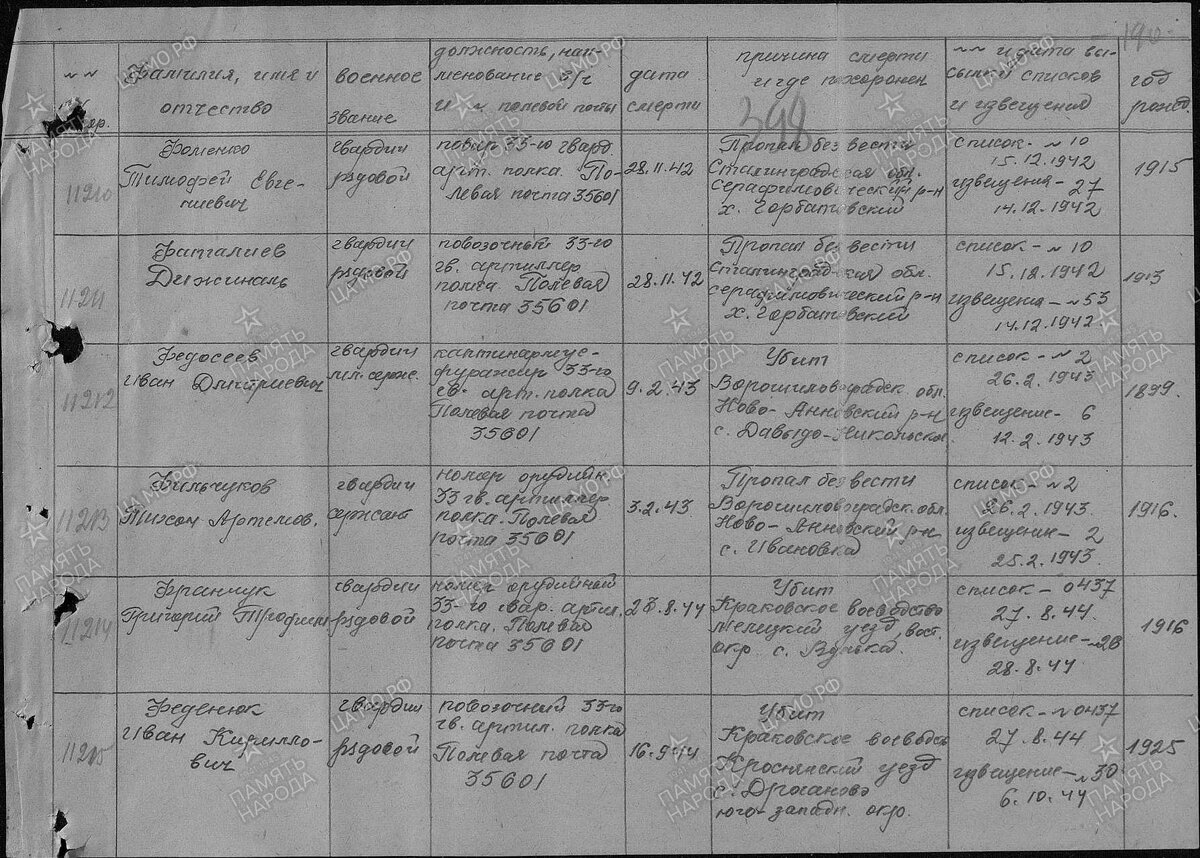 190
№№ пр.
фамилия, имя и
отчество
военное
звание
должность, наи-
менование в/ч
и № полевой почты
дата
смерти
причина смерти
и где похоронен
398
№№ и дата вы-
сылки списков
и извещения
год
рожд.
11210
Фоменко
Тимофей Евге-
ниевич
гвардии
рядовой
повар 33-го гвард.
арт. полка. По-
левая почта 35601
28.11.42
Пропал без вести
Сталинградская обл.
Серафимовический р-н
х. Горбатовский
список - №10
15.12.1942
извещения - 27
14.12.1942
1915
11211
Фаталиев
Джиналь
гвардии
рядовой
повозочный 33-го
гв. артиллер
полка Полевая
почта 35601
28.11.42
Пропал без вести
Сталинградская обл.
Серафимовический р-н
х. Горбатовский
список - №10
15.12.1942
извещения - №53
14.12.1942
1913
11212
Федосеев
Иван Дмитриевич
гвардии
мл. серж.
каптинармус-
фуражир 33-го
гв. арт. полка
Полевая почта
35601
9.2.43
Убит
Ворошиловградск. обл.
Ново-Анновский р-н
с. Давыдо-Никольское
список - №2
26.2.1943
извещение - 6
12.2.1943
1899.
11213
Фильчуков
Тихон Артемов.
гвардии
сержант
номер орудийн
33 гв. артиллер
полка. Полевая
почта 35601
3.2.43
Пропал без вести
Ворошиловоградск. обл.
Ново-Анновский р-н
с. Ивановка
список - №2
26.2.1943.
извещение - 2
25.2.1943.
1916.
11214
Франчук
Григорий Трофим
гвардии
рядовой
номер орудийной
33-го гвар. артил.
полка. Полевая
почта 35601
23.8.44
Убит
Краковское воеводство
Мелецкий уезд, вост.
окр. с. Вулька.
список - 0437
27.8.44.
извещение - №28
28.8.44
1916
11215
Феденюк
Иван Кирилло-
вич
гвардии
рядовой
повозочный 33-го
гв. артил. полка
Полевая почта
35601
16.9.44
Убит
Краковское воеводсь
Кроснянский уезд
юго-западн. окр.
список - №0437
27.8.44
извещение - №30
6.10.44
1925
ЦАМО.РФ
ПАМЯТЬ
НАРОДА